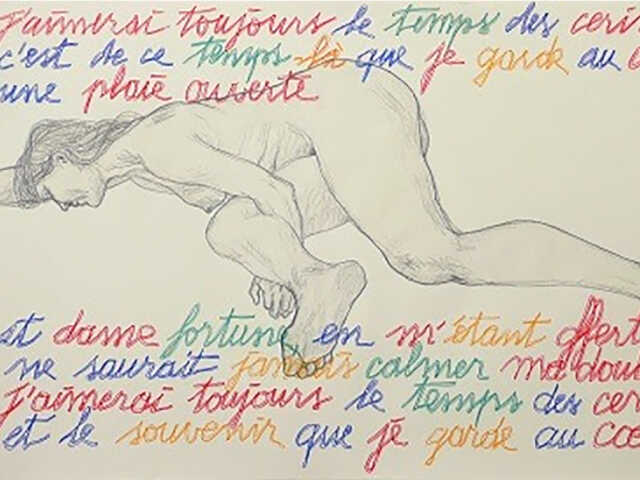 j'aimerai toujours le temps des ceri
c'est de ce temps là que je garde au c
une plaie ouverte
et dame fortune en m'étant offert
ne saurait jamais calmer ma doul
j'aimerai toujours le temps des ceri
et le souvenir que je garde au coe